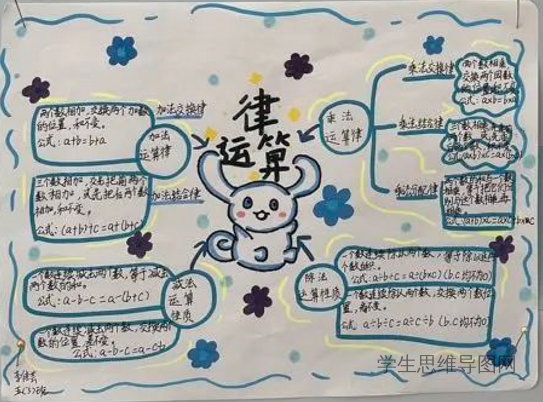 运算律
加法交换律
两个数相加，交换两个加数
的位置，和不变。
公式：a+b=b+a
加法
运算律
加法结合律
相加，和不变。
公式：(a+b)+c=a+(b+c)
乘法
运算律
乘法交换律
两个数相乘，
交换两个因数
的位置
公式：a×b=b×a
乘法结合律
乘法分配律
减法
运算
性质
一个数连续减去两个数，等于减去
两个数的和。
公式：a-b-c=a-(b+c)
一个数连续减去两个数，交换两个
数的位置，差不变。
公式：a-b-c=a-c-b
除法
运算性质
一个数连续除以两个数，等于除以这
个数的积。
公式：a÷b÷c=a÷(b×c)(b.c均不为0)
一个数连续除以两个数，交换两个数位
置，商不变。
公式：a÷b÷c=a÷c÷b (b.c均不为0)
学生思维导图网